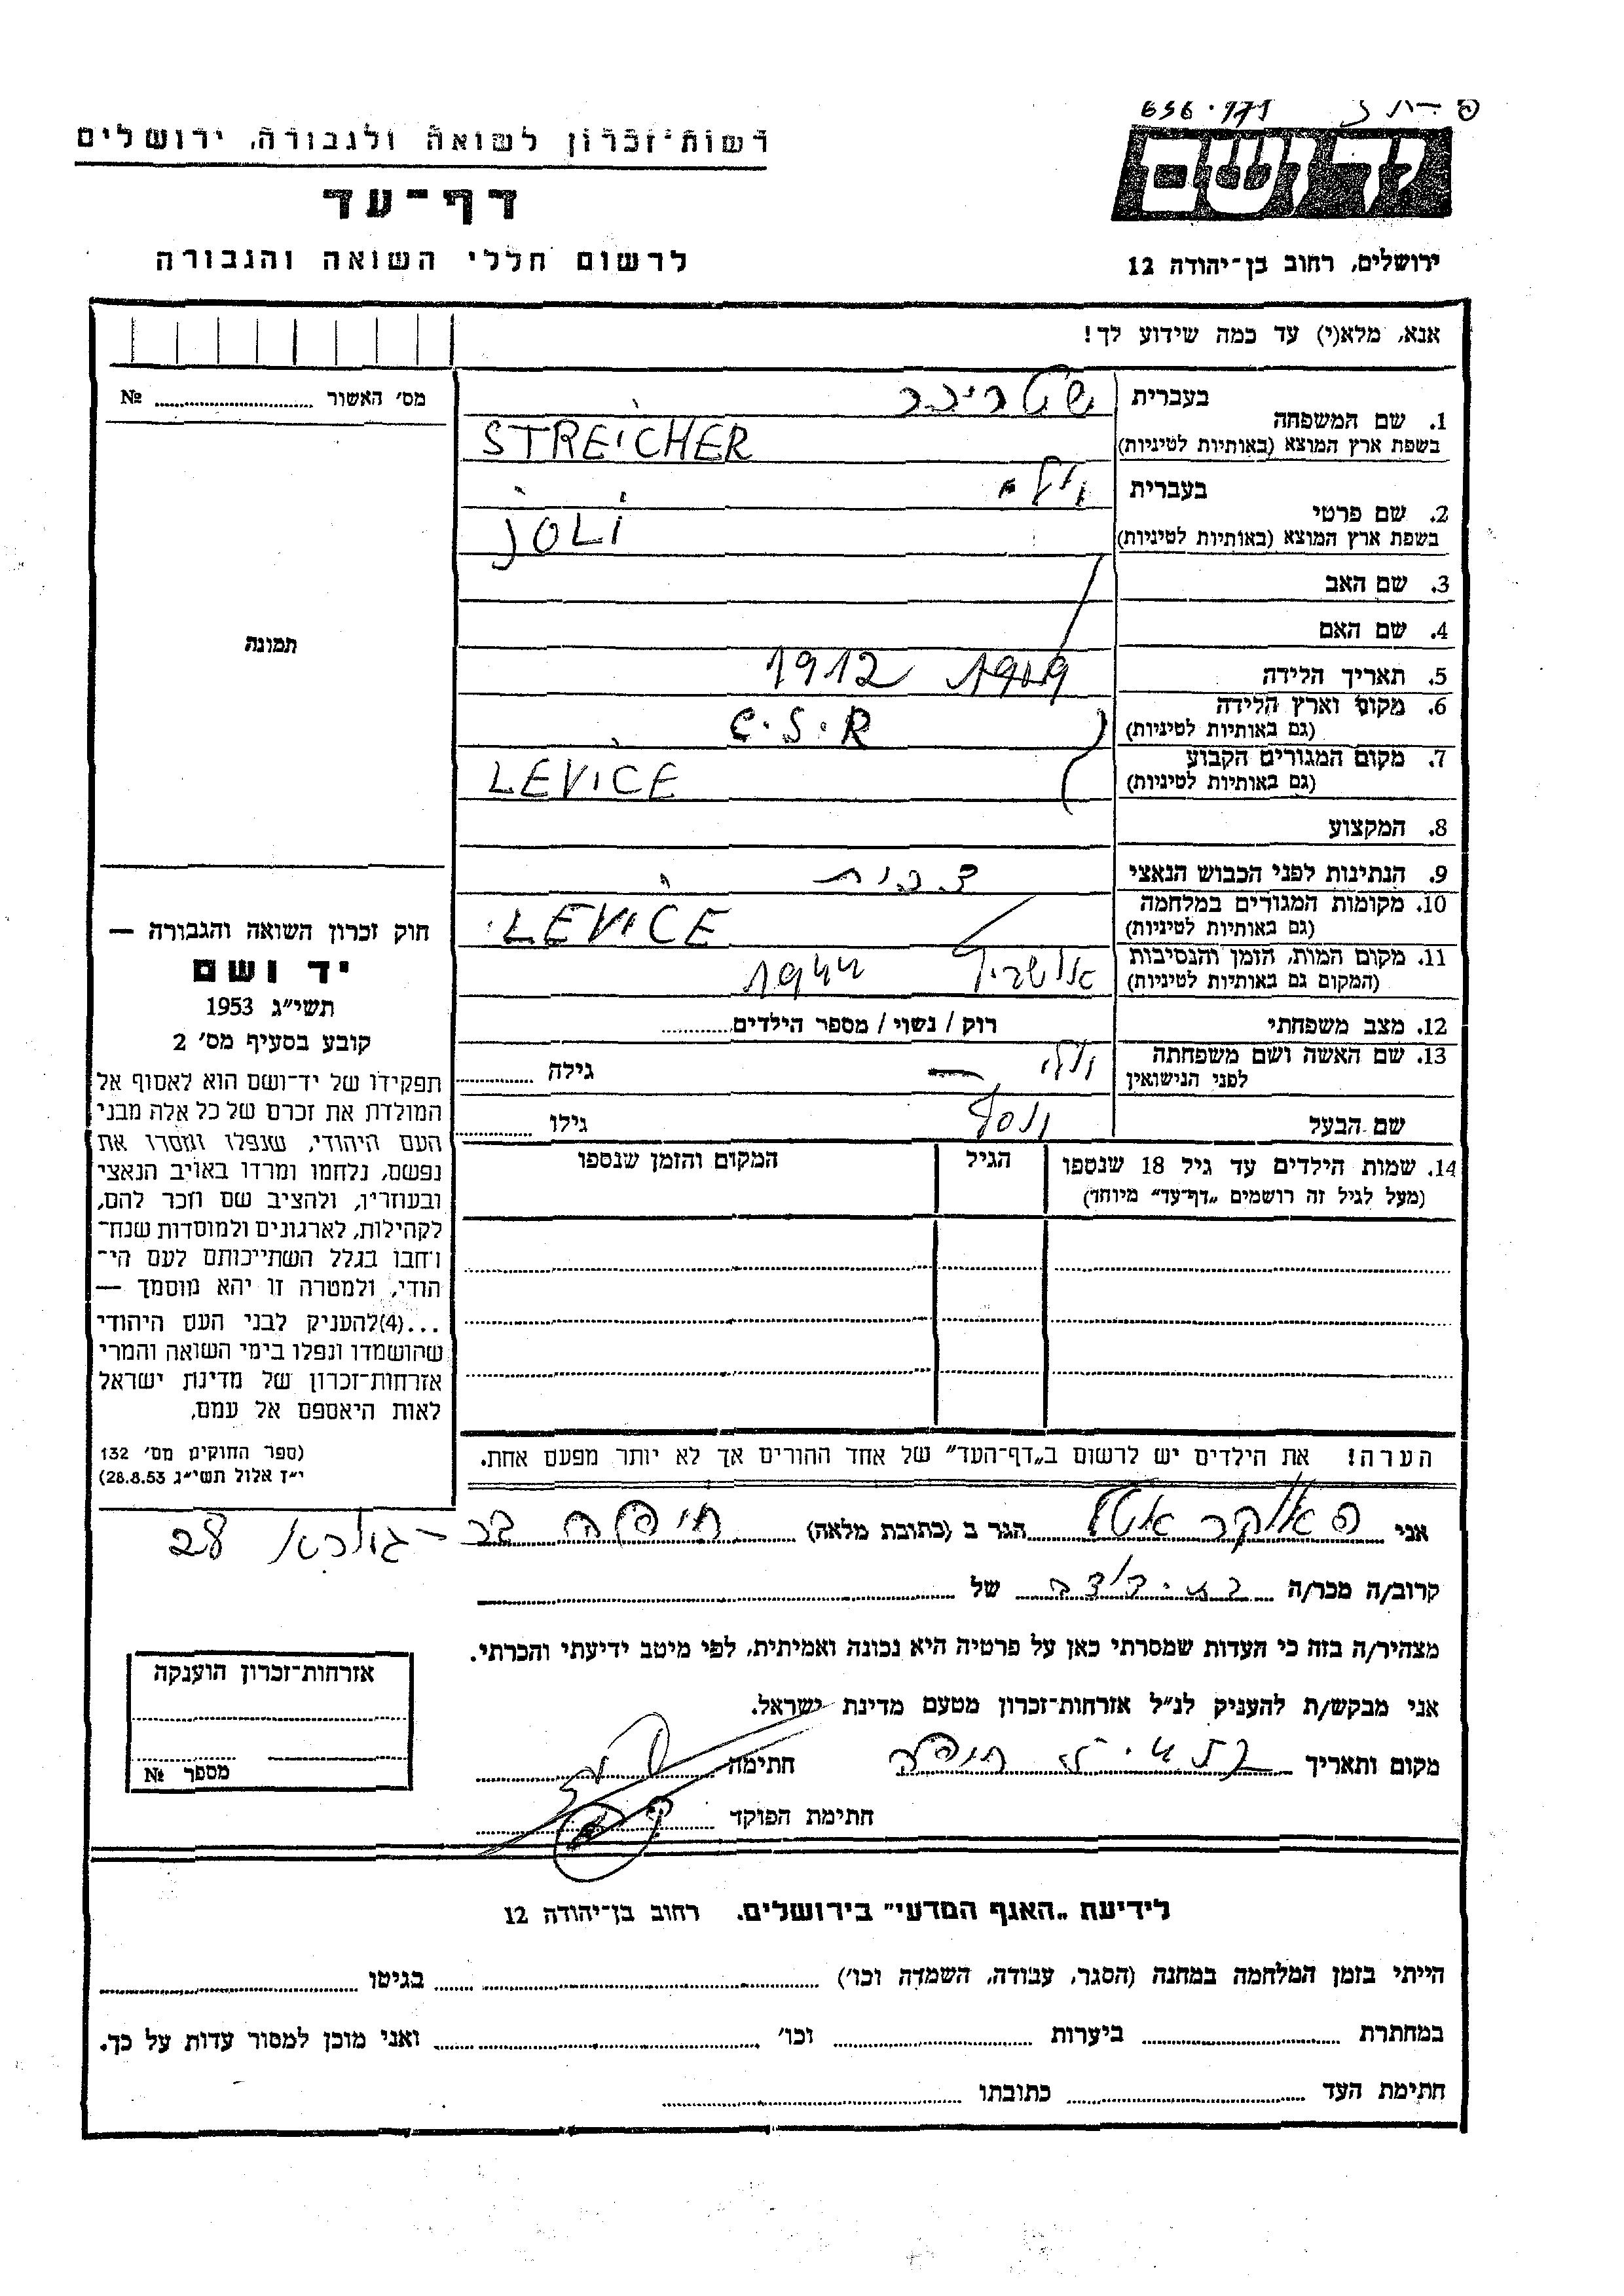 רשות־זכרון לשואה ולגבורה, ירושלים
דף־עד
לרשום חללי השואה והגבורה
ידושם
ירושלים, רחוב בן־יהודה 12
אנא, מלא(י) עד כמה שידוע לך!
מס׳ האשור № ........
1. שם המשפחה בעברית שטרייכר
בשפת ארץ המוצא (באותיות לטיניות) STREICHER
2. שם פרטי בעברית
בשפת ארץ המוצא (באותיות לטיניות) JOLI
3. שם האב
4. שם האם
5. תאריך הלידה 1909 1912
6. מקום וארץ הלידה (גם באותיות לטיניות) C.S.R
7. מקום המגורים הקבוע (גם באותיות לטיניות) LEVICE
8. המקצוע
9. הנתינות לפני הכבוש הנאצי
10. מקומות המגורים במלחמה (גם באותיות לטיניות) LEVICE
11. מקום המות, הזמן והנסיבות (המקום גם באותיות לטיניות) אושביץ 1944
12. מצב משפחתי רוק / נשוי / מספר הילדים........
13. שם האשה ושם משפחתה לפני הנישואין גילה ........
שם הבעל יוסף גילו ........
14. שמות הילדים עד גיל 18 שנספו הגיל המקום והזמן שנספו
(מעל לגיל זה רושמים „דף־עד״ מיוחד)
הערה! את הילדים יש לרשום ב„דף־העד״ של אחד ההורים אך לא יותר מפעם אחת.
תמונה
חוק זכרון השואה והגבורה —
יד ושם
תשי״ג 1953
קובע בסעיף מס׳ 2
תפקידו של יד־ושם הוא לאסוף אל
המולדת את זכרם של כל אלה מבני
העם היהודי, שנפלו ומסרו את
נפשם, נלחמו ומרדו באויב הנאצי
ובעוזריו, ולהציב שם וזכר להם,
לקהילות, לארגונים ולמוסדות שנח־
רחבו בגלל השתייכותם לעם הי־
הודי, ולמטרה זו יהא מוסמך —
...(4)להעניק לבני העם היהודי
שהושמדו ונפלו בימי השואה והמרי
אזרחות־זכרון של מדינת ישראל
לאות היאספם אל עמם.
(ספר החוקים מס׳ 132
י״ז אלול תשי״ג 28.8.53)
אני הגר ב (כתובת מלאה) חיפה
קרוב/ה מכר/ה של
מצהיר/ה בזה כי העדות שמסרתי כאן על פרטיה היא נכונה ואמיתית, לפי מיטב ידיעתי והכרתי.
אני מבקש/ת להעניק לנ״ל אזרחות־זכרון מטעם מדינת ישראל.
מקום ותאריך חיפה חתימה
חתימת הפוקד
אזרחות־זכרון הוענקה
מספר №
לידיעת „האגף המדעי״ בירושלים. רחוב בן־יהודה 12
הייתי בזמן המלחמה במחנה (הסגר, עבודה, השמדה וכו׳) ........ בגיטו ........
במחתרת ........ ביערות ........ וכו׳ ........ ואני מוכן למסור עדות על כך.
חתימת העד ........ כתובתו ........